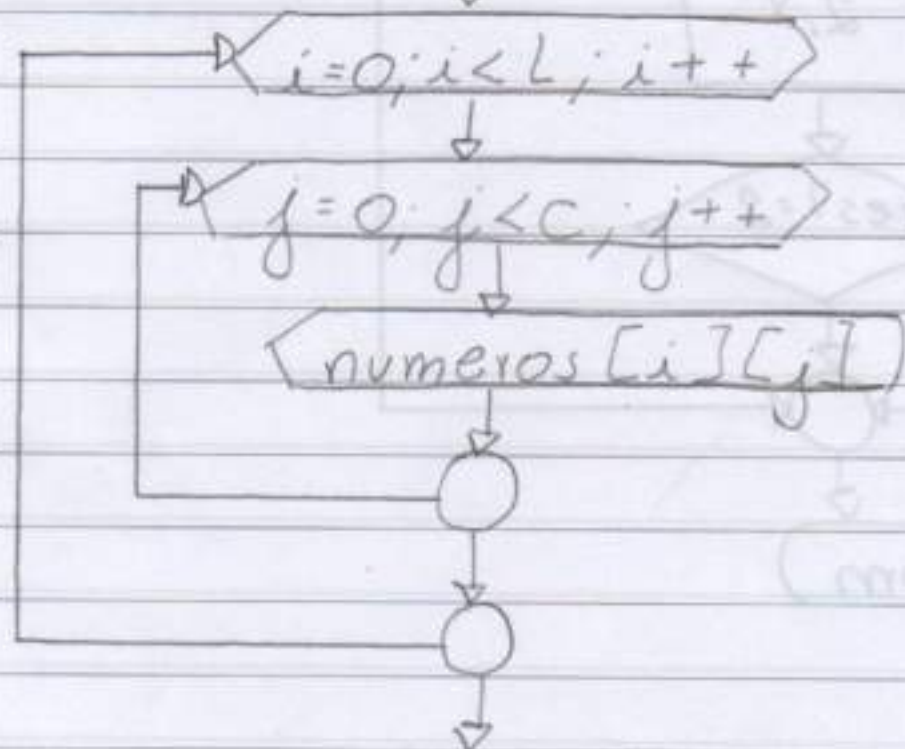 i=0; i<L; i++
j=0; j<C; j++
numeros [i][j]